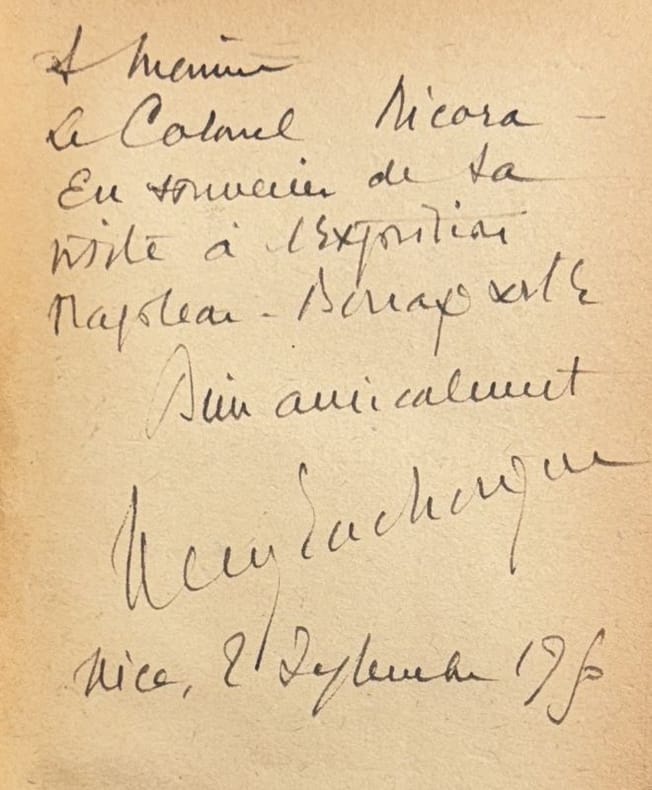 A Monsieur
Le Colonel Nicora -
En souvenir de sa
visite à l'Exposition
Napoléon - Bonaparte
Bien amicalement
Nice, 2 Septembre